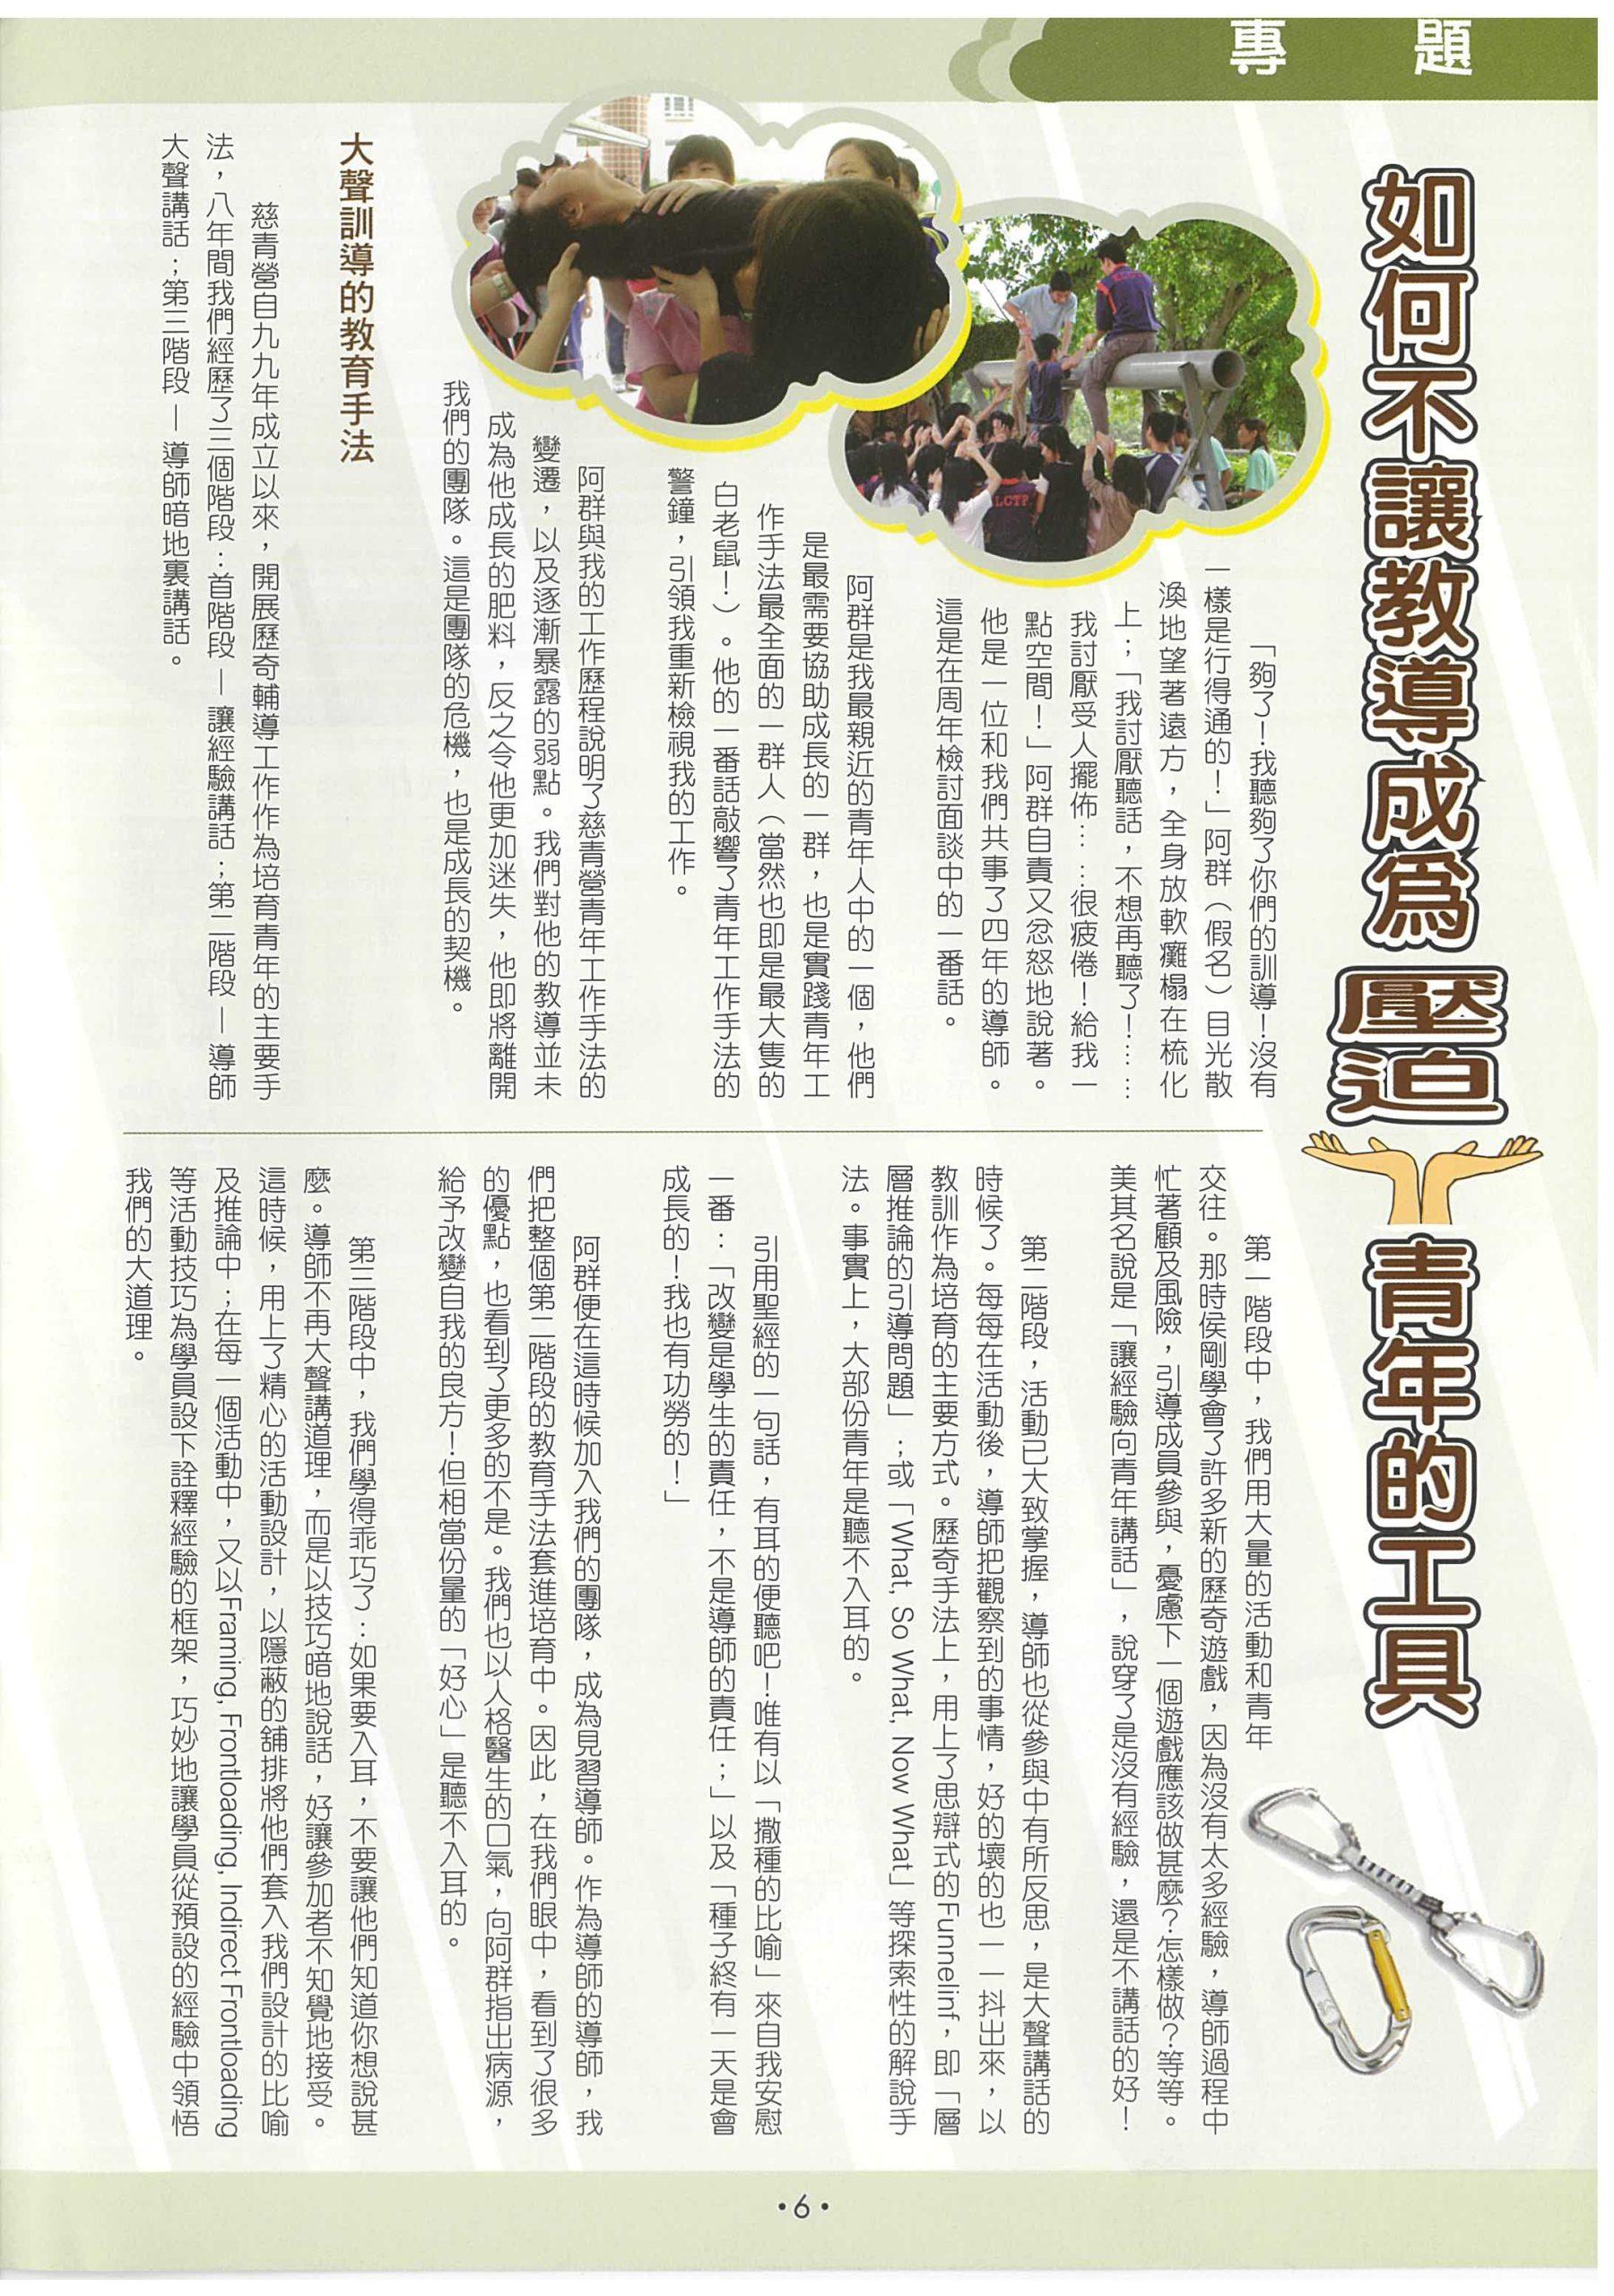 專題
如何不讓教導成為壓迫青年的工具
「夠了！我聽夠了你們的訓導！沒有
一樣是行得通的！」阿群（假名）目光散
渙地望著遠方，全身放軟癱榻在梳化
上；「我討厭聽話，不想再聽了！……
我討厭受人擺佈……很疲倦！給我一
點空間！」阿群自責又忿怒地說著。
他是一位和我們共事了四年的導師。
這是在周年檢討面談中的一番話。
阿群是我最親近的青年人中的一個，他們
是最需要協助成長的一群，也是實踐青年工
作手法最全面的一群人（當然也即是最大隻的
白老鼠！）。他的一番話敲響了青年工作手法的
警鐘，引領我重新檢視我的工作。
阿群與我的工作歷程說明了慈青營青年工作手法的
變遷，以及逐漸暴露的弱點。我們對他的教導並未
成為他成長的肥料，反之令他更加迷失，他即將離開
我們的團隊。這是團隊的危機，也是成長的契機。
大聲訓導的教育手法
慈青營自九九年成立以來，開展歷奇輔導工作作為培育青年的主要手
法，八年間我們經歷了三個階段：首階段－讓經驗講話；第二階段－導師
大聲講話；第三階段－導師暗地裏講話。
第一階段中，我們用大量的活動和青年
交往。那時侯剛學會了許多新的歷奇遊戲，因為沒有太多經驗，導師過程中
忙著顧及風險，引導成員參與，憂慮下一個遊戲應該做甚麼？怎樣做？等等。
美其名說是「讓經驗向青年講話」，說穿了是沒有經驗，還是不講話的好！
第二階段，活動已大致掌握，導師也從參與中有所反思，是大聲講話的
時候了。每每在活動後，導師把觀察到的事情，好的壞的也一一抖出來，以
教訓作為培育的主要方式。歷奇手法上，用上了思辯式的Funnelinf，即「層
層推論的引導問題」；或「What, So What, Now What」等探索性的解說手
法。事實上，大部份青年是聽不入耳的。
引用聖經的一句話，有耳的便聽吧！唯有以「撒種的比喻」來自我安慰
一番：「改變是學生的責任，不是導師的責任；」以及「種子終有一天是會
成長的！我也有功勞的！」
阿群便在這時候加入我們的團隊，成為見習導師。作為導師的導師，我
們把整個第二階段的教育手法套進培育中。因此，在我們眼中，看到了很多
的優點，也看到了更多的不是。我們也以人格醫生的口氣，向阿群指出病源，
給予改變自我的良方！但相當份量的「好心」是聽不入耳的。
第三階段中，我們學得乖巧了：如果要入耳，不要讓他們知道你想說甚
麼。導師不再大聲講道理，而是以技巧暗地說話，好讓參加者不知覺地接受。
這時候，用上了精心的活動設計，以隱蔽的舖排將他們套入我們設計的比喻
及推論中；在每一個活動中，又以Framing, Frontloading, Indirect Frontloading
等活動技巧為學員設下詮釋經驗的框架，巧妙地讓學員從預設的經驗中領悟
我們的大道理。
•6•